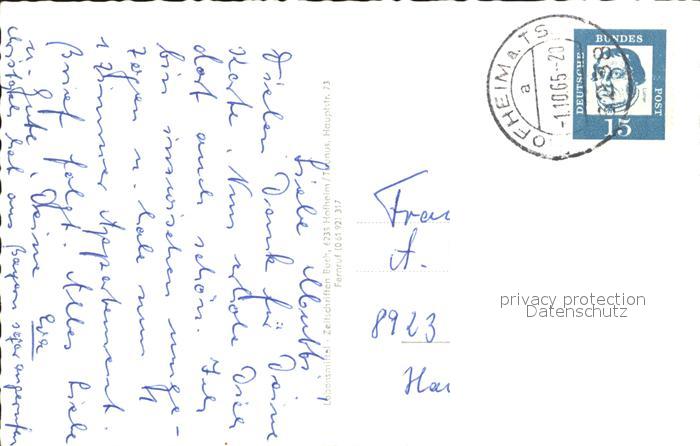 Liebe Mutti!
Vielen Dank für Deine
Karte. Nun erhole Dich
dort auch schön. Ich
bin inzwischen umge-
zogen u. habe nun
1 Zimmer Appartement.
Brief folgt. Alles Liebe
u. Gute, Deine Eva
hat aus Bayern sogar angerufen
Lebensmittel - Zeitschriften Buch, 6233 Hofheim/Taunus, Hauptstr. 73
Fernruf (06192) 317
HOFHEIM a. TS
a
-1.10.65-20
6238
DEUTSCHE
BUNDES
POST
15
Frau
A.
8923
privacy protection
Datenschutz